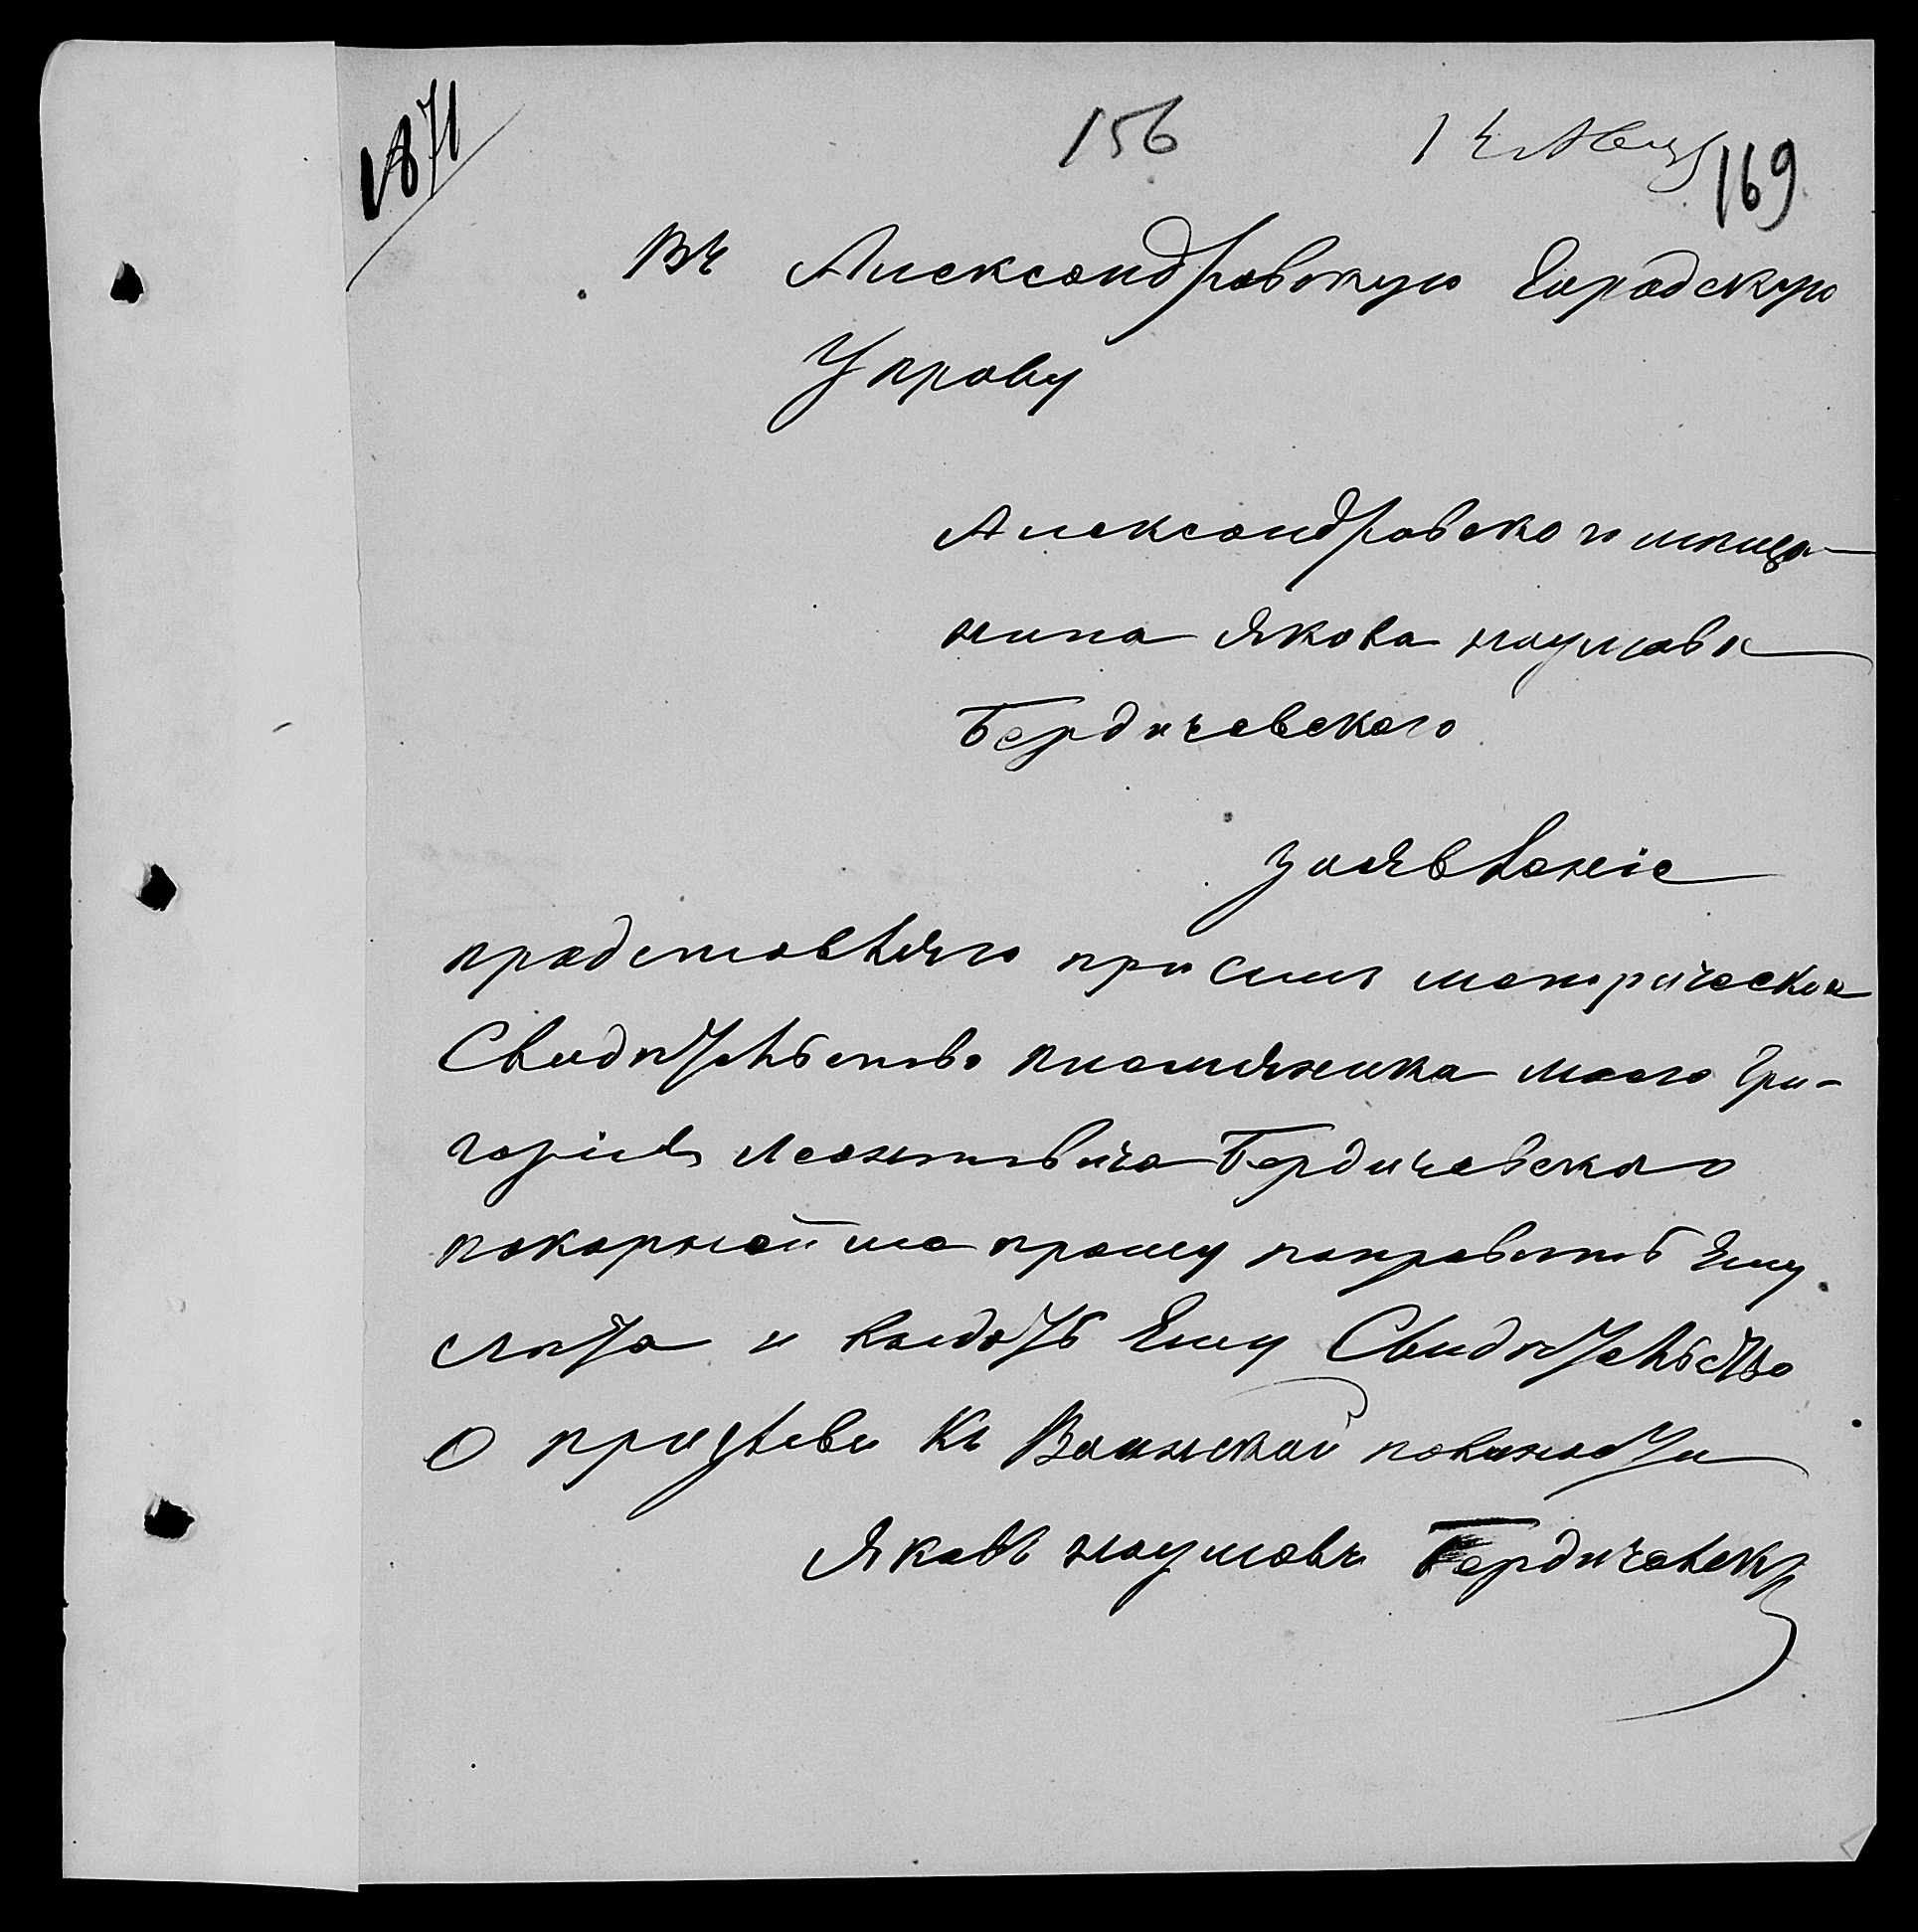 1871
156
169
Въ Александровскую Городскую
Управу
Александровского мѣща-
нина Якова Наумова
Бердичевского
заявленіе
представляю при семъ метрическое
Свидѣтельство племянника моего Гри-
горія Леонтовича Бердичевского
покорнейше прошу поправить Ему
лѣта и выдать Ему Свидѣтельство
О призыви Къ Воинской повиности
Яковъ Наумовъ Бердичевски